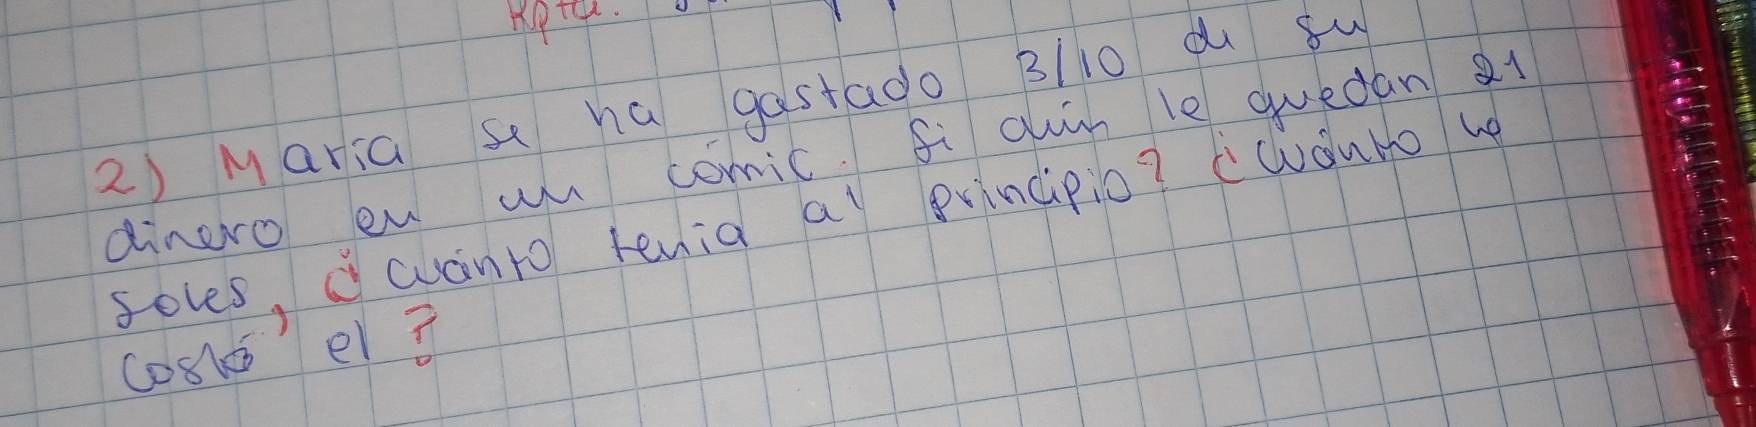 Rpta.
2) Maria se ha gastado 3/10 de su
dinero en un cómic. Si aún le quedan 21
soles, ¿cuánto tenia al principio? ¿Cuánto le
costó el ?